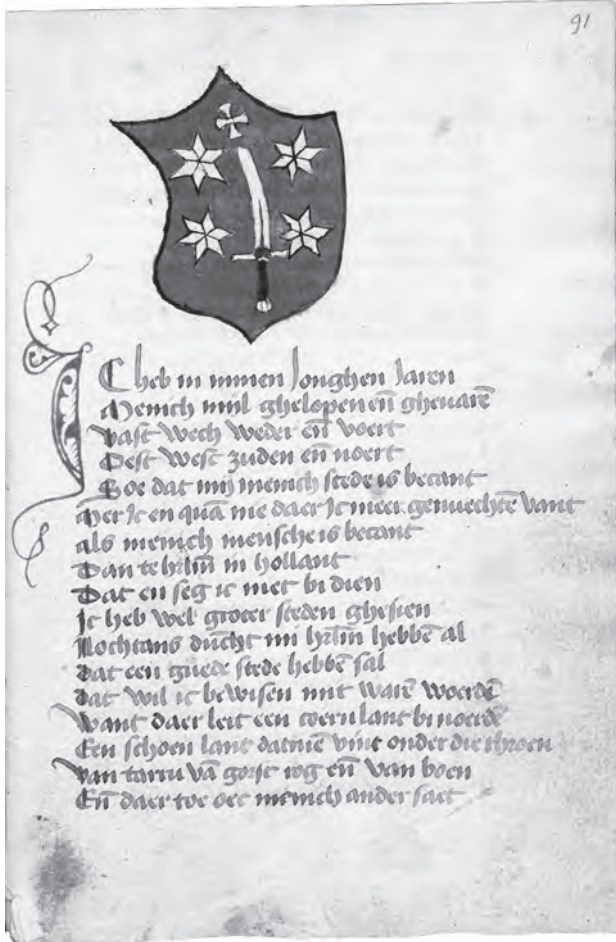 91
IC heb in minen Jonghen Jaren
Menich mil ghelopen eñ gheuarē
Vast wech weder eñ voert
Oest west zuden eñ noert
Soe dat mij menich stede is becant
Mer Ic en quā nie daer Ic meer genuechtē vant
als menich mensche is becant
Dan te hrlm̄ in hollant
Dat en seg ic niet bi dien
Ic heb wel groter steden ghesien
Nochtans dūcht mi hrlm̄ hebbē al
dat een guede stede hebbē sal
dat wil ic bewisen mit warē woerdē
Want daer leit een coern lant bi noerdē
Een schoen lant datmē vint onder die throen
van tarru vā gorst rog eñ van boen
Eñ daer toe oec menich ander saet